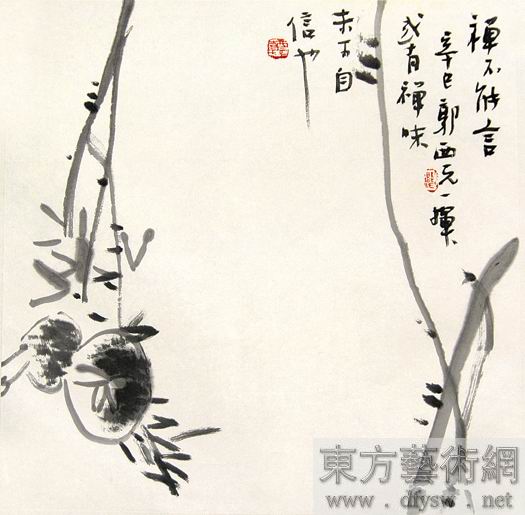 禪不能言
辛巳郭西元一揮
或有禪味
未可自
信也
東方藝術網
www.dfysw.net